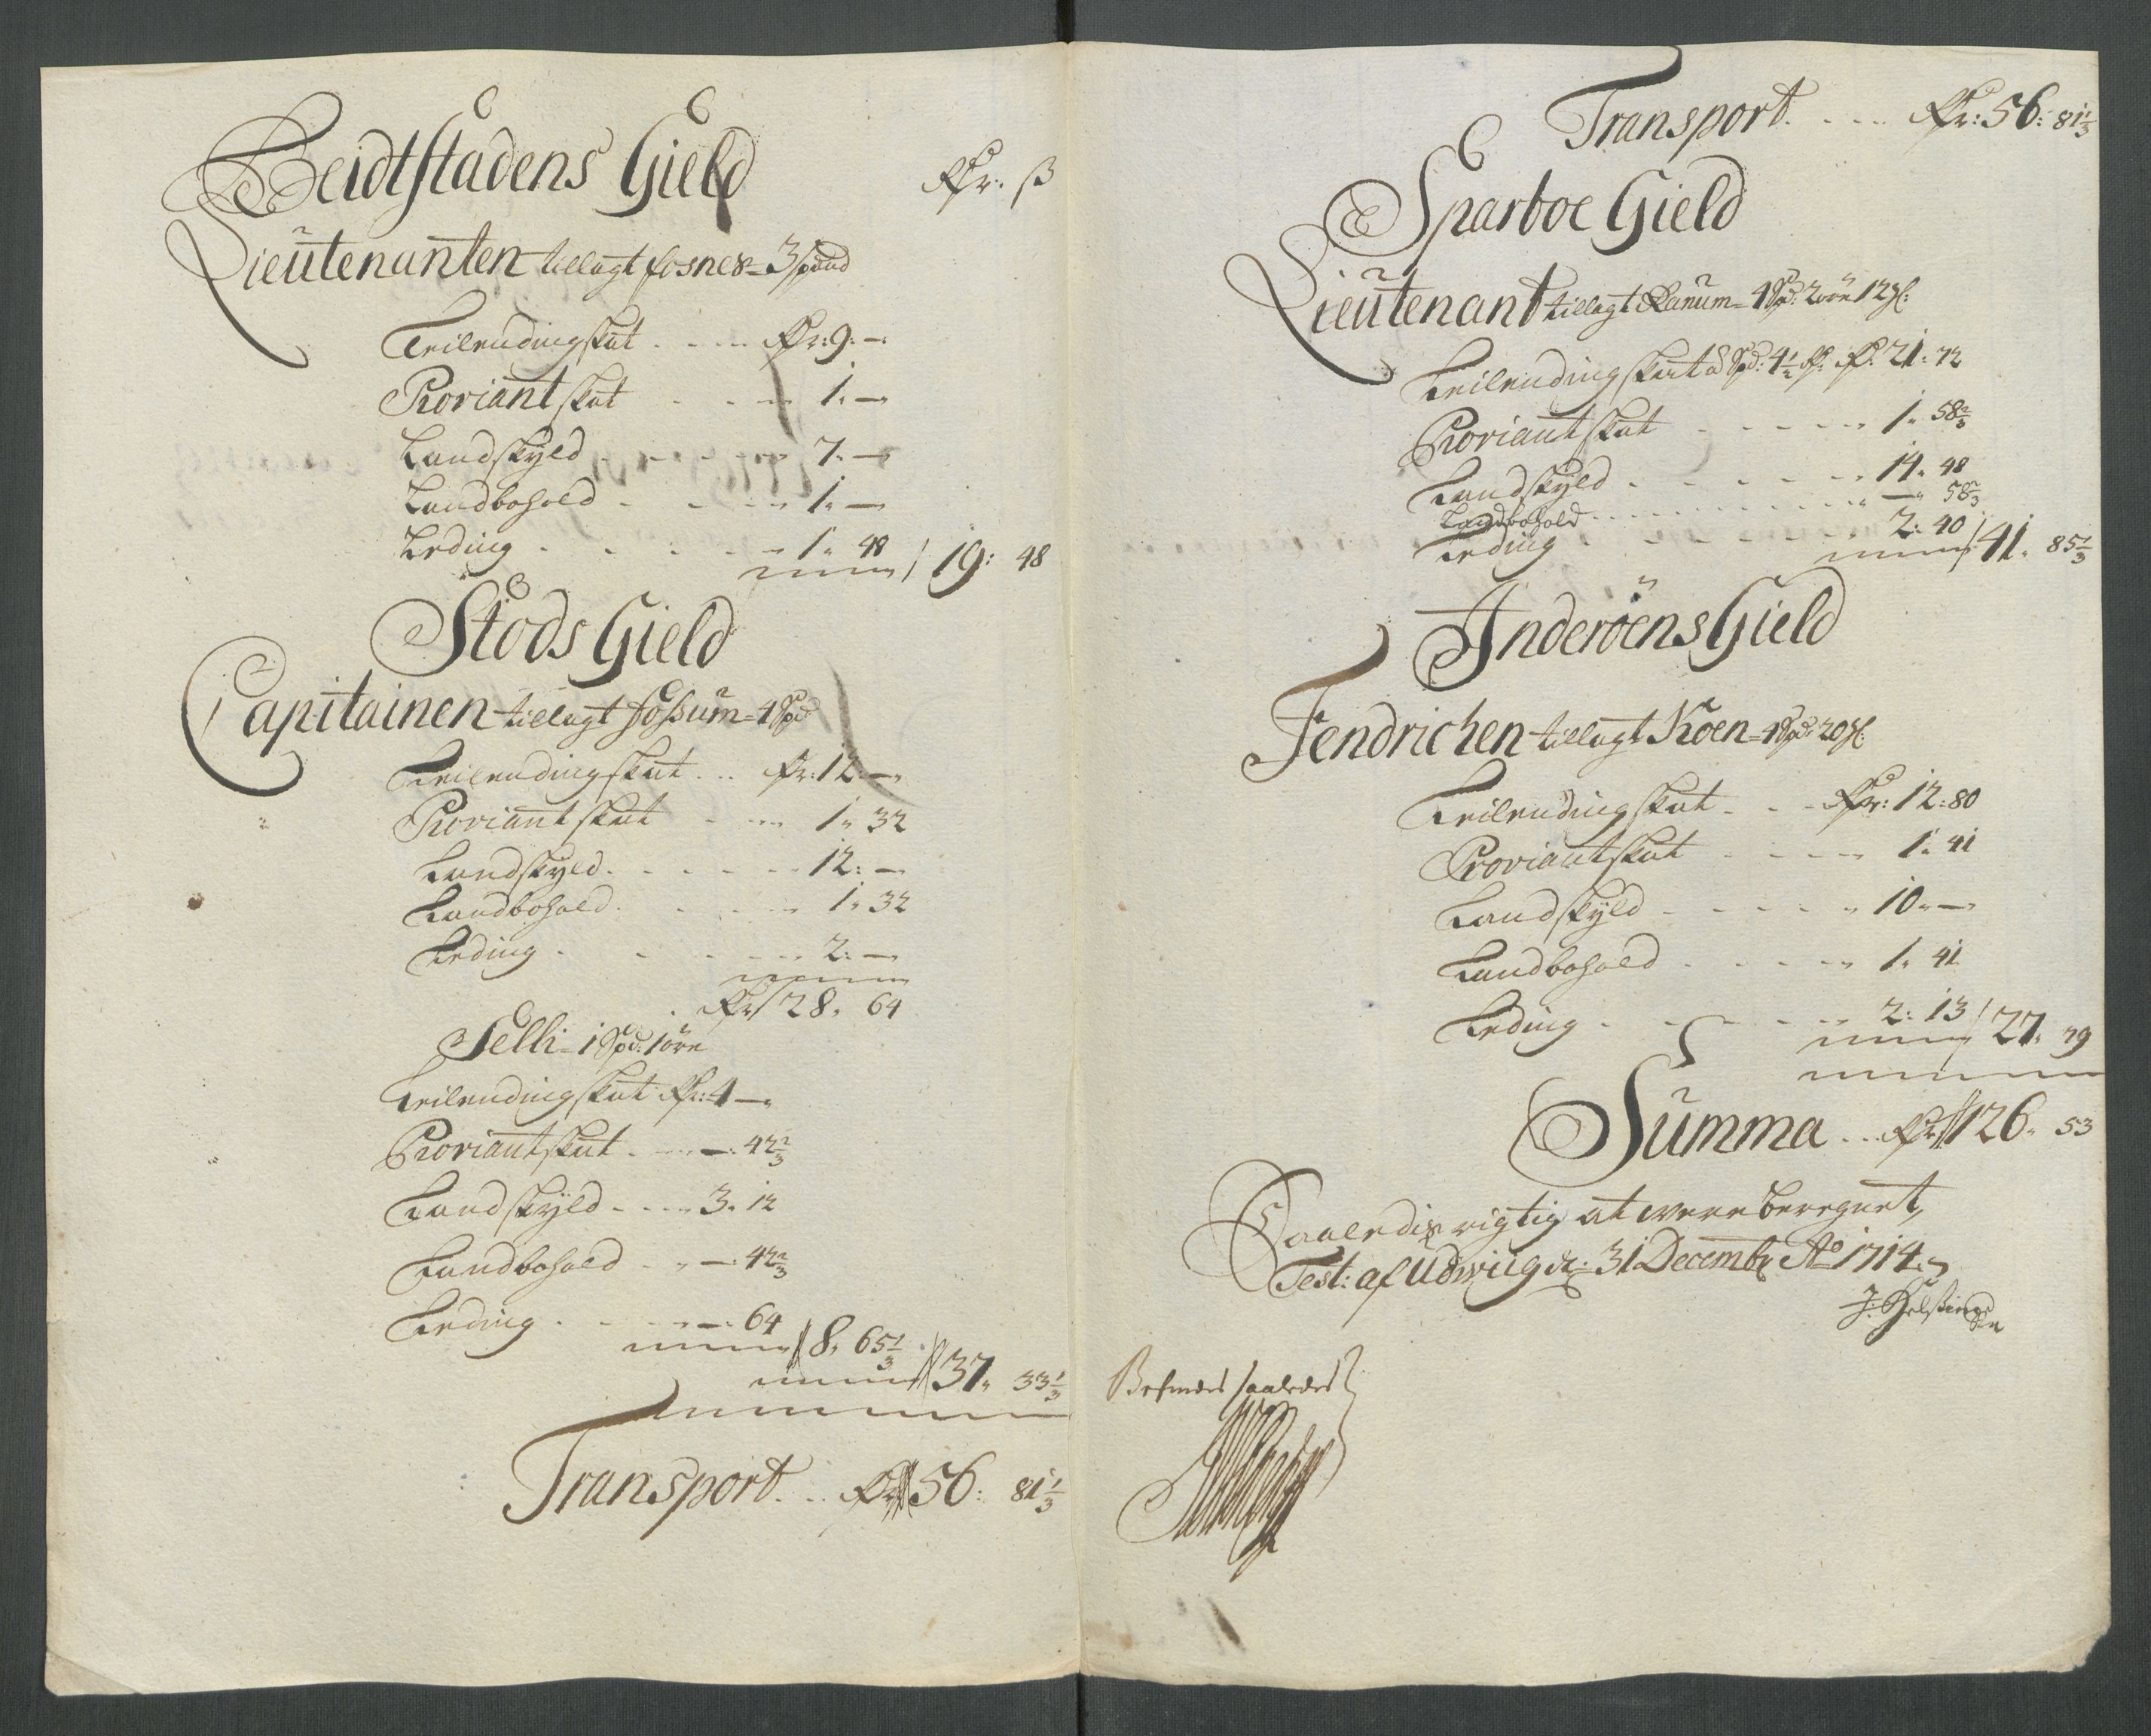 Beidtstadens Gield
Rdr: ß
Lieutenanten tillagt fosnes = 3 spand
Leilendingskat . . . . Rdr: 9: —
Proviantskat . . . . 1: —
Landskyld . . . . 7: —
Landbohold . . . . 1: —
Leding . . . . 1: 48 / 19: 48
Stods Gield
Capitainen tillagt Foßum = 4 Spd
Leilendingskat . . . Rdr: 12: —
Proviantskat . . . . 1: 32
Landskyld . . . . 12: —
Landbohold . . . . 1: 32
Leding . . . . 2: —
Rdr 28: 64
Selli = 1 Spd: 1 øre
Leilendingskat Rdr: 4 —
Proviantskat . . . —: 42 2/3
Landskyld . . . . 3: 12
Landbohold . . —: 42 2/3
Leding . . . . —: 64
8: 65 1/3
37: 33 1/3
Transport . . . Rdr 56: 81 1/3
Transport . . . . Rdr: 56: 81 1/3
Sparboe Gield
Lieutenant tillagt Ranum = 4 Spd: 2 øre 12 Ml:
Leilendingskat à Spd: 4 1/2 Rdr Rdr: 21: 72
Proviantskat . . . . 1: 58 2/3
Landskyld . . . . 14: 48
Landbohold . . . . — 58 2/3
Leding . . . . 2: 40 / 41: 85 1/3
Inderöens Gield
Fendrichen tillagt Koen = 4 Spd: 20 Ml:
Leilendingskat . . . Rdr: 12: 80
Proviantskat . . . . 1: 41
Landskyld . . . . 10: —
Landbohold . . . . 1: 41
Leding . . . . 2: 13 / 27: 79
Summa . . . Rdr 126: 53
Saaledis rigtig at were beregnet,
Test: af Udwiig d: 31 Decembr Ao 1714
Befindes saaledes